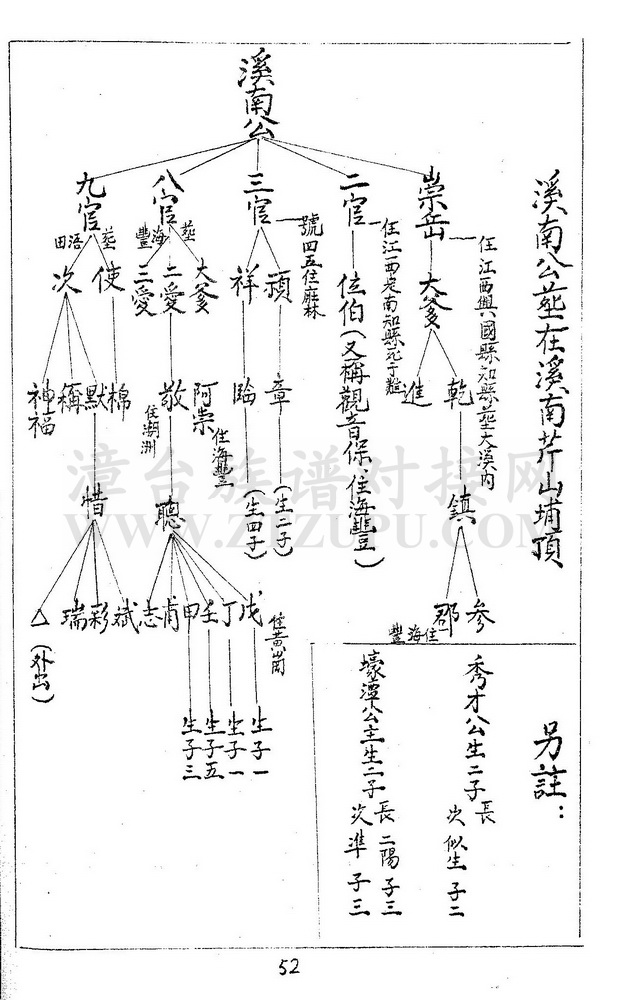 溪南公塟在溪南芹山埔頂
溪南公
崇岳
任江西興國縣知縣塟大溪內
大爹
乾
進
鎮
參
郡
住海豐
二官
任江西定南知縣死于難
位伯(又稱觀音保、住海豐)
三官
號四五住庵林
禎
祥
章
臨
(生二子)
(生四子)
八官
塟海豐
大爹
二愛
三愛
阿崇
住海豐
敬
住潮洲
聰
戊
丁
壬
甲
甫
志
住黃崗
生子一
生子一
生子五
生子三
九官
塟浯田
使
次
棉
默
稱
神福
惜
斌
彩
瑞
△(外出)
另註:
秀才公生二子長
次似生子二
壕潭公主生二子長二陽子三
次準子三
漳台族谱对接网
WWW.ZTZUPU.COM
52